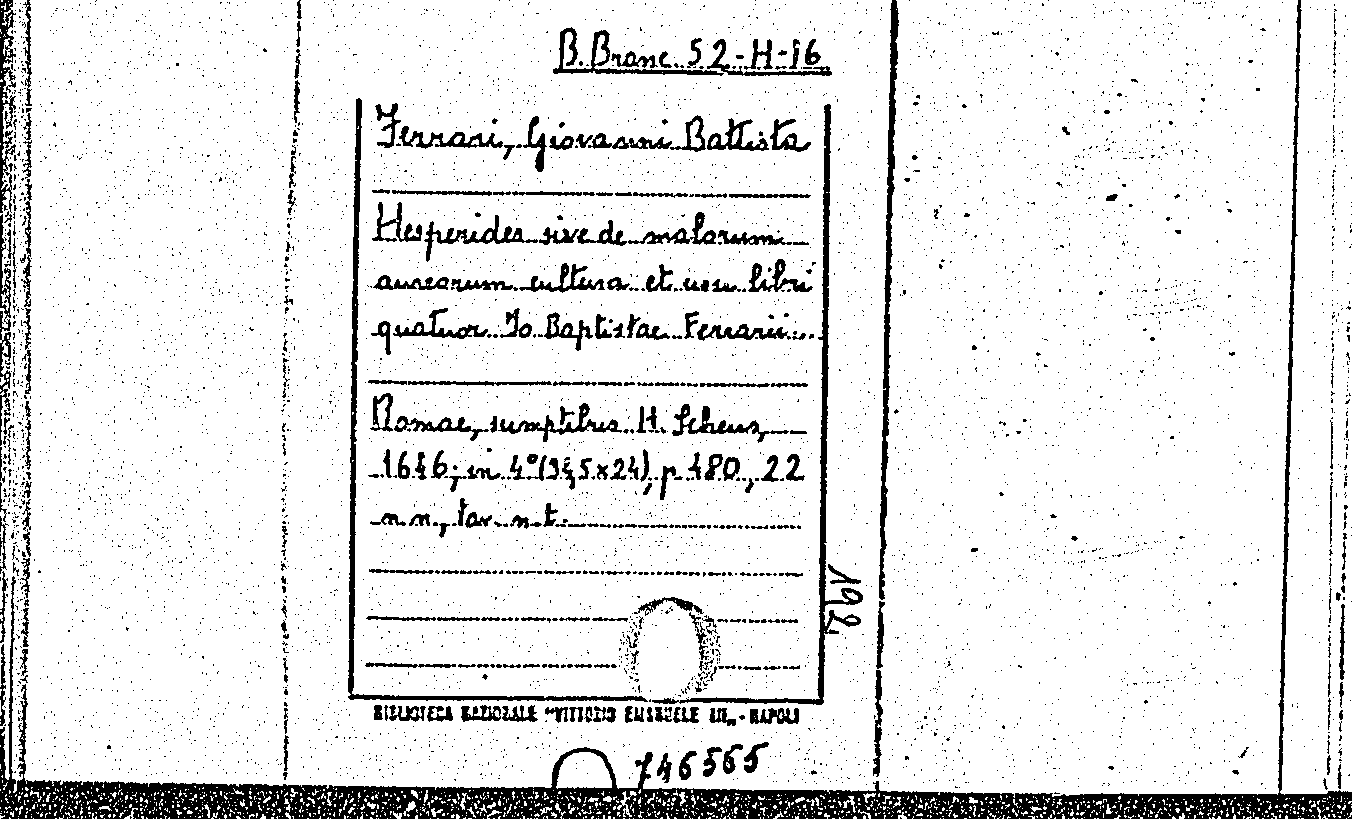 B. Branc. 52-H-16
Ferrari, Giovanni Battista
Hesperides sive de malorum
aureorum cultura et usu libri
quatuor Io. Baptistae Ferrarii...
Romae, sumptibus H. Scheus,
1646; in 4° (345x24), p. 480, 22
n.n., tav. n.t.
192
BIBLIOTECA NAZIONALE "VITTORIO EMANUELE III„ - NAPOLI
746565